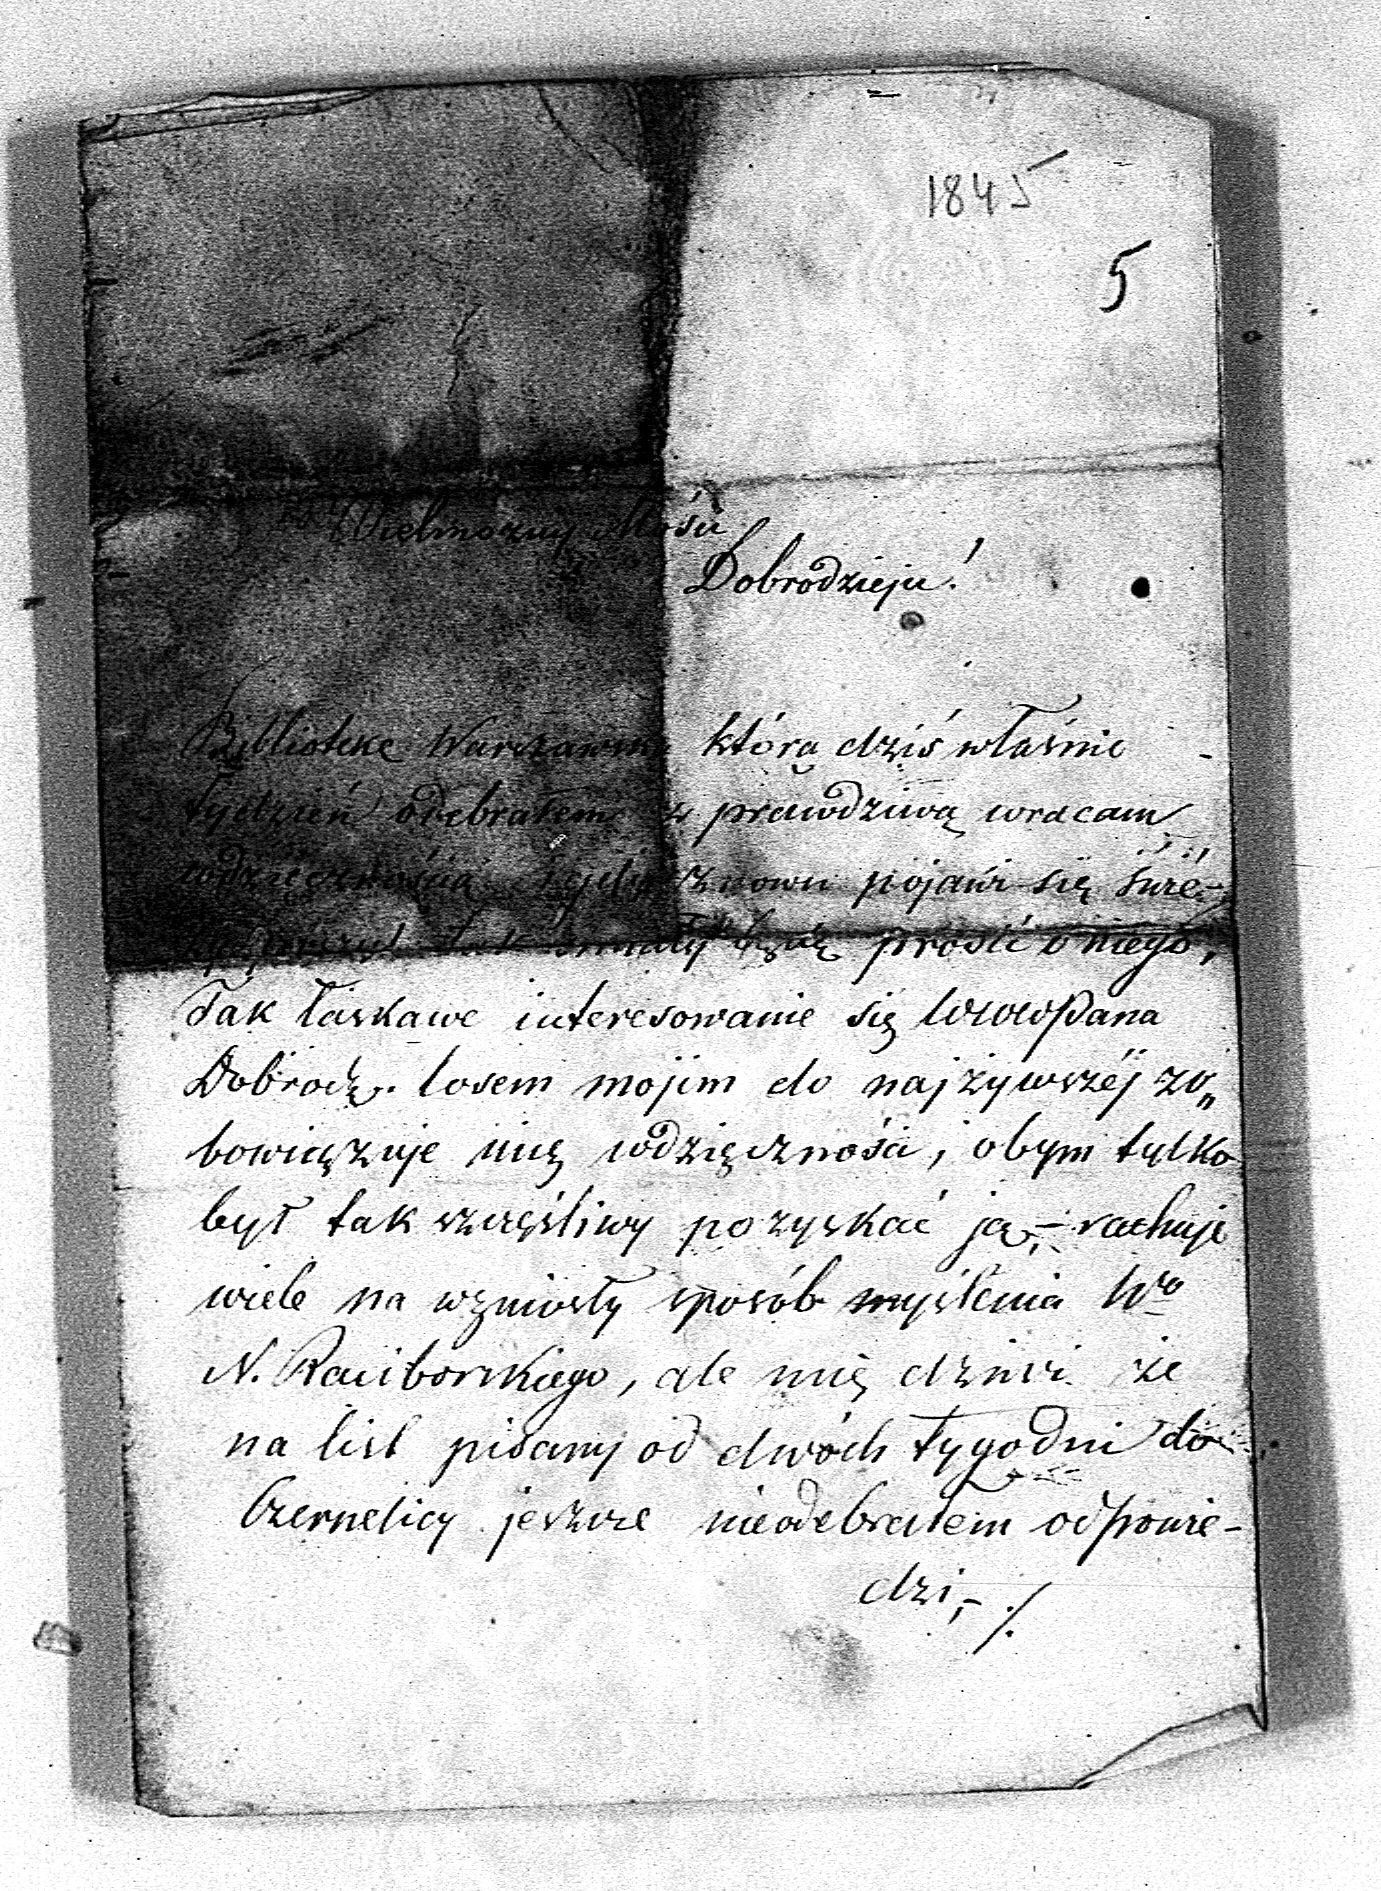 1845
5
Wielmożny Mości
Dobrodzieju!
Bibliotekę Warszawską którą dziś właśnie
tydzień odebrałem z prawdziwą wracam
wdzięcznością znowu pojawi się
będę prosić o niego,
Tak łaskawe interesowanie się WWPana
Dobrodz. losem mojim do najżywszéj zo„
bowięzuje mię wdzięczności, obym tylko
był tak szczęśliwy pozyskać ją,- rachuję
wiele na wzniosły sposób myślenia Wo
N. Raciborskiego, ale mię dziwi że
na list pisany od dwóch tygodni do
Czernelicy jeszcze nieodebrałem odpowie-
dzi,- ./.